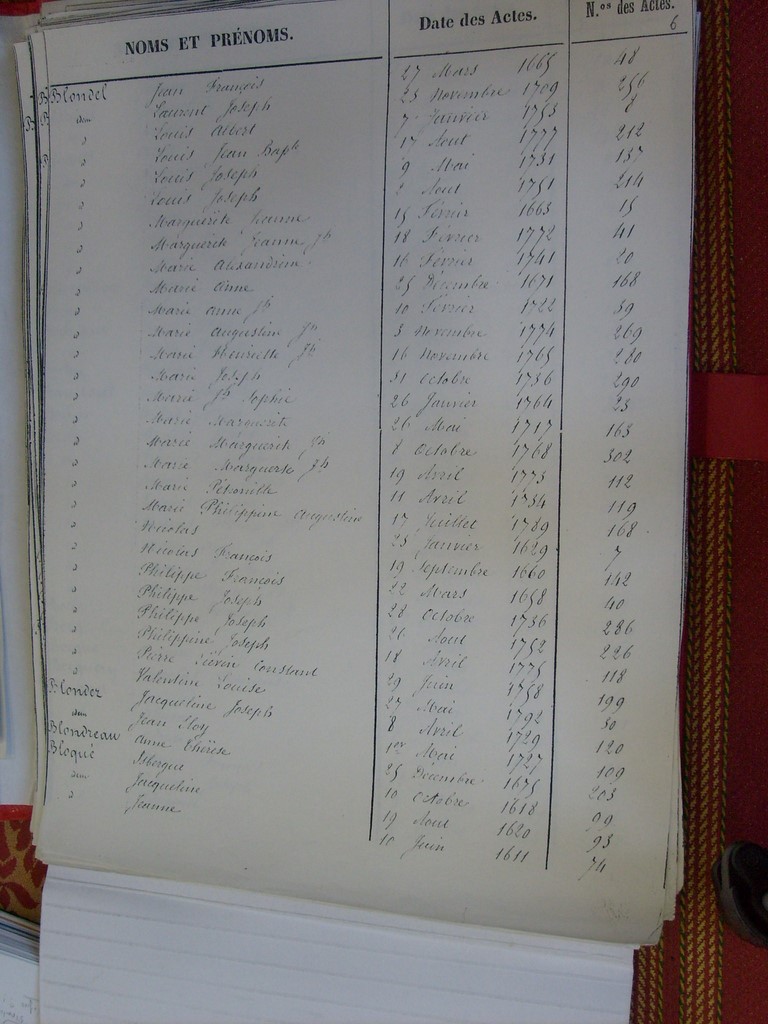 NOMS ET PRÉNOMS. Date des Actes. N.os des Actes.
6
Blondel Jean François 27 Mars 1665 48
dem Laurent Joseph 23 Novembre 1709 256
" Louis Albert 7 Janvier 1753 8
" Louis Jean Bapte 17 Aout 1777 212
" Louis Joseph 9 Mai 1731 137
" Louis Joseph 2 Aout 1751 214
" Marguerite Jeanne 15 Février 1663 15
" Marguerite Jeanne Jh 18 Février 1772 41
" Marie Alexandrine 16 Février 1741 20
" Marie Anne 25 Décembre 1671 168
" Marie Anne Jh 10 Février 1722 39
" Marie Augustine Jh 3 Novembre 1774 269
" Marie Henriette Jh 16 Novembre 1765 280
" Marie Joseph 31 Octobre 1736 290
" Marie Jh Sophie 26 Janvier 1764 23
" Marie Marguerite 26 Mai 1717 163
" Marie Marguerite Jh 8 Octobre 1768 302
" Marie Marguerite Jh 19 Avril 1773 112
" Marie Pétronille 11 Avril 1734 119
" Marie Philippine Augustine 17 Juillet 1789 168
" Nicolas 25 Janvier 1629 7
" Nicolas François 19 Septembre 1660 142
" Philippe François 22 Mars 1658 40
" Philippe Joseph 28 Octobre 1736 286
" Philippe Joseph 26 Aout 1752 226
" Philippine Joseph 18 Avril 1775 118
" Pierre Liévin Constant 29 Juin 1758 199
" Valentine Louise 27 Mai 1792 50
Blonder Jacqueline Joseph 8 Avril 1729 120
dem Jean Eloy 1er Mai 1727 109
Blondreau Anne Thérèse 25 Décembre 1675 203
Bloqué Isbergue 10 Octobre 1618 99
dem Jacqueline 19 Aout 1620 93
" Jeanne 10 Juin 1611 74